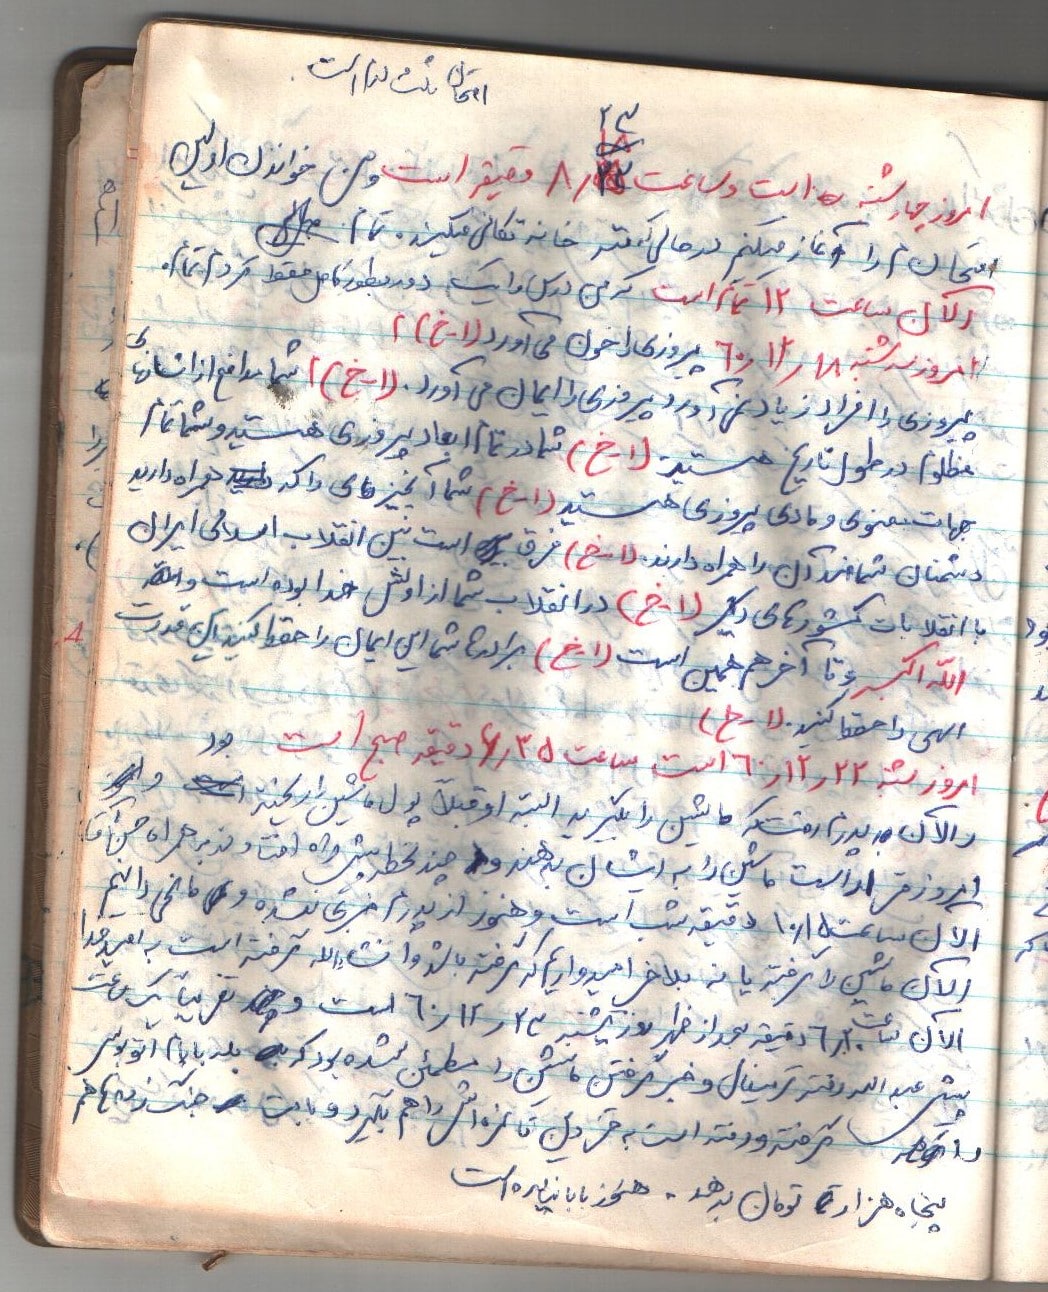 امتحان ثلث دوم است
۲۳
امروز چهارشنبه است و ساعت ۸ دقیقه است و من خواندن اولین
امتحان را آغاز میکنم در حالی که دختر خانه تکانی میکنند. تمام
الان ساعت ۱۲ تمام است که من درس را یک دور بطور کامل حفظ کردم تمام.
امروز سه شنبه ۶۰/۱۲/۱۸ پیروزی را خون می آورد (ا-خ)
پیروزی را افراد زیاد نمی آورد پیروزی را ایمان می آورد. (ا-خ) شما مدافع از انسانهای
مظلوم در طول تاریخ هستید. (ا-خ) شما در تمام ابعاد پیروزی هستید و شما تمام
جهات معنوی و مادی پیروزی هستید (ا-خ) شما آن چیزهایی را که همراه دارید
دشمنان شما ضد آن را همراه دارند. (ا-خ) فرق است بین انقلاب اسلامی ایران
با انقلابات کشورهای دیگر (ا-خ) در انقلاب شما از اولش خدا بوده است و
الله اکبر و تا آخر هم همین است (ا-خ) برادرها شما این ایمان را حفظ کنید این قدرت
الهی را حفظ کنید. (ا-خ)
امروز شنبه ۶۰/۱۲/۲۲ است ساعت ۶/۳۵ دقیقه صبح است
و الان پدرم رفت که ماشین را بگیرید البته او قبلاً پول ماشین را ریخته بود و
امروز قرار است ماشین را به ایشان بدهند و چند لحظه پیش راه افتاد به همراه حسن آقا
الان ساعت ۱۰/۱۵ دقیقه شب است و هنوز از پدرم خبری نشده و ما نمی دانیم
الان ماشین را گرفته یا نه بلاخره امیدواریم که گرفته باشد و انشاءالله گرفته است به امید خدا
الان ساعت ۶/۲۰ دقیقه بعد از ظهر روز یکشنبه ۶۰/۱۲/۲۳ است و تقریبا یک ساعت
پیش عبدالله رفته ترمینال و خبر گرفتن ماشین را مطمئن شده بود که بله بابام اتوبوس
را گرفته و رفته است به قزوین تا نمره اش را هم بگیرد و بابت جنگ زده ها هم
پنجاه هزار تومان بدهد. هنوز بابا نیامده است